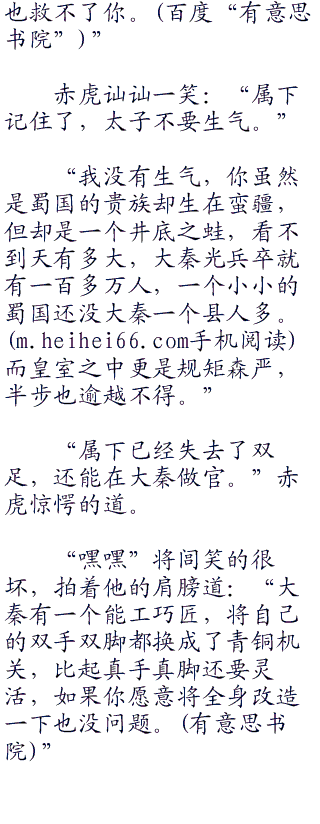 也救不了你。(百度“有意思
书院”)”
赤虎讪讪一笑：“属下
记住了，太子不要生气。”
“我没有生气，你虽然
是蜀国的贵族却生在蛮疆，
但却是一个井底之蛙，看不
到天有多大，大秦光兵卒就
有一百多万人，一个小小的
蜀国还没大秦一个县人多。
(m.heihei66.com手机阅读)
而皇室之中更是规矩森严，
半步也逾越不得。”
“属下已经失去了双
足，还能在大秦做官。”赤
虎惊愕的道。
“嘿嘿”将闾笑的很
坏，拍着他的肩膀道：“大
秦有一个能工巧匠，将自己
的双手双脚都换成了青铜机
关，比起真手真脚还要灵
活，如果你愿意将全身改造
一下也没问题。(有意思书
院)”